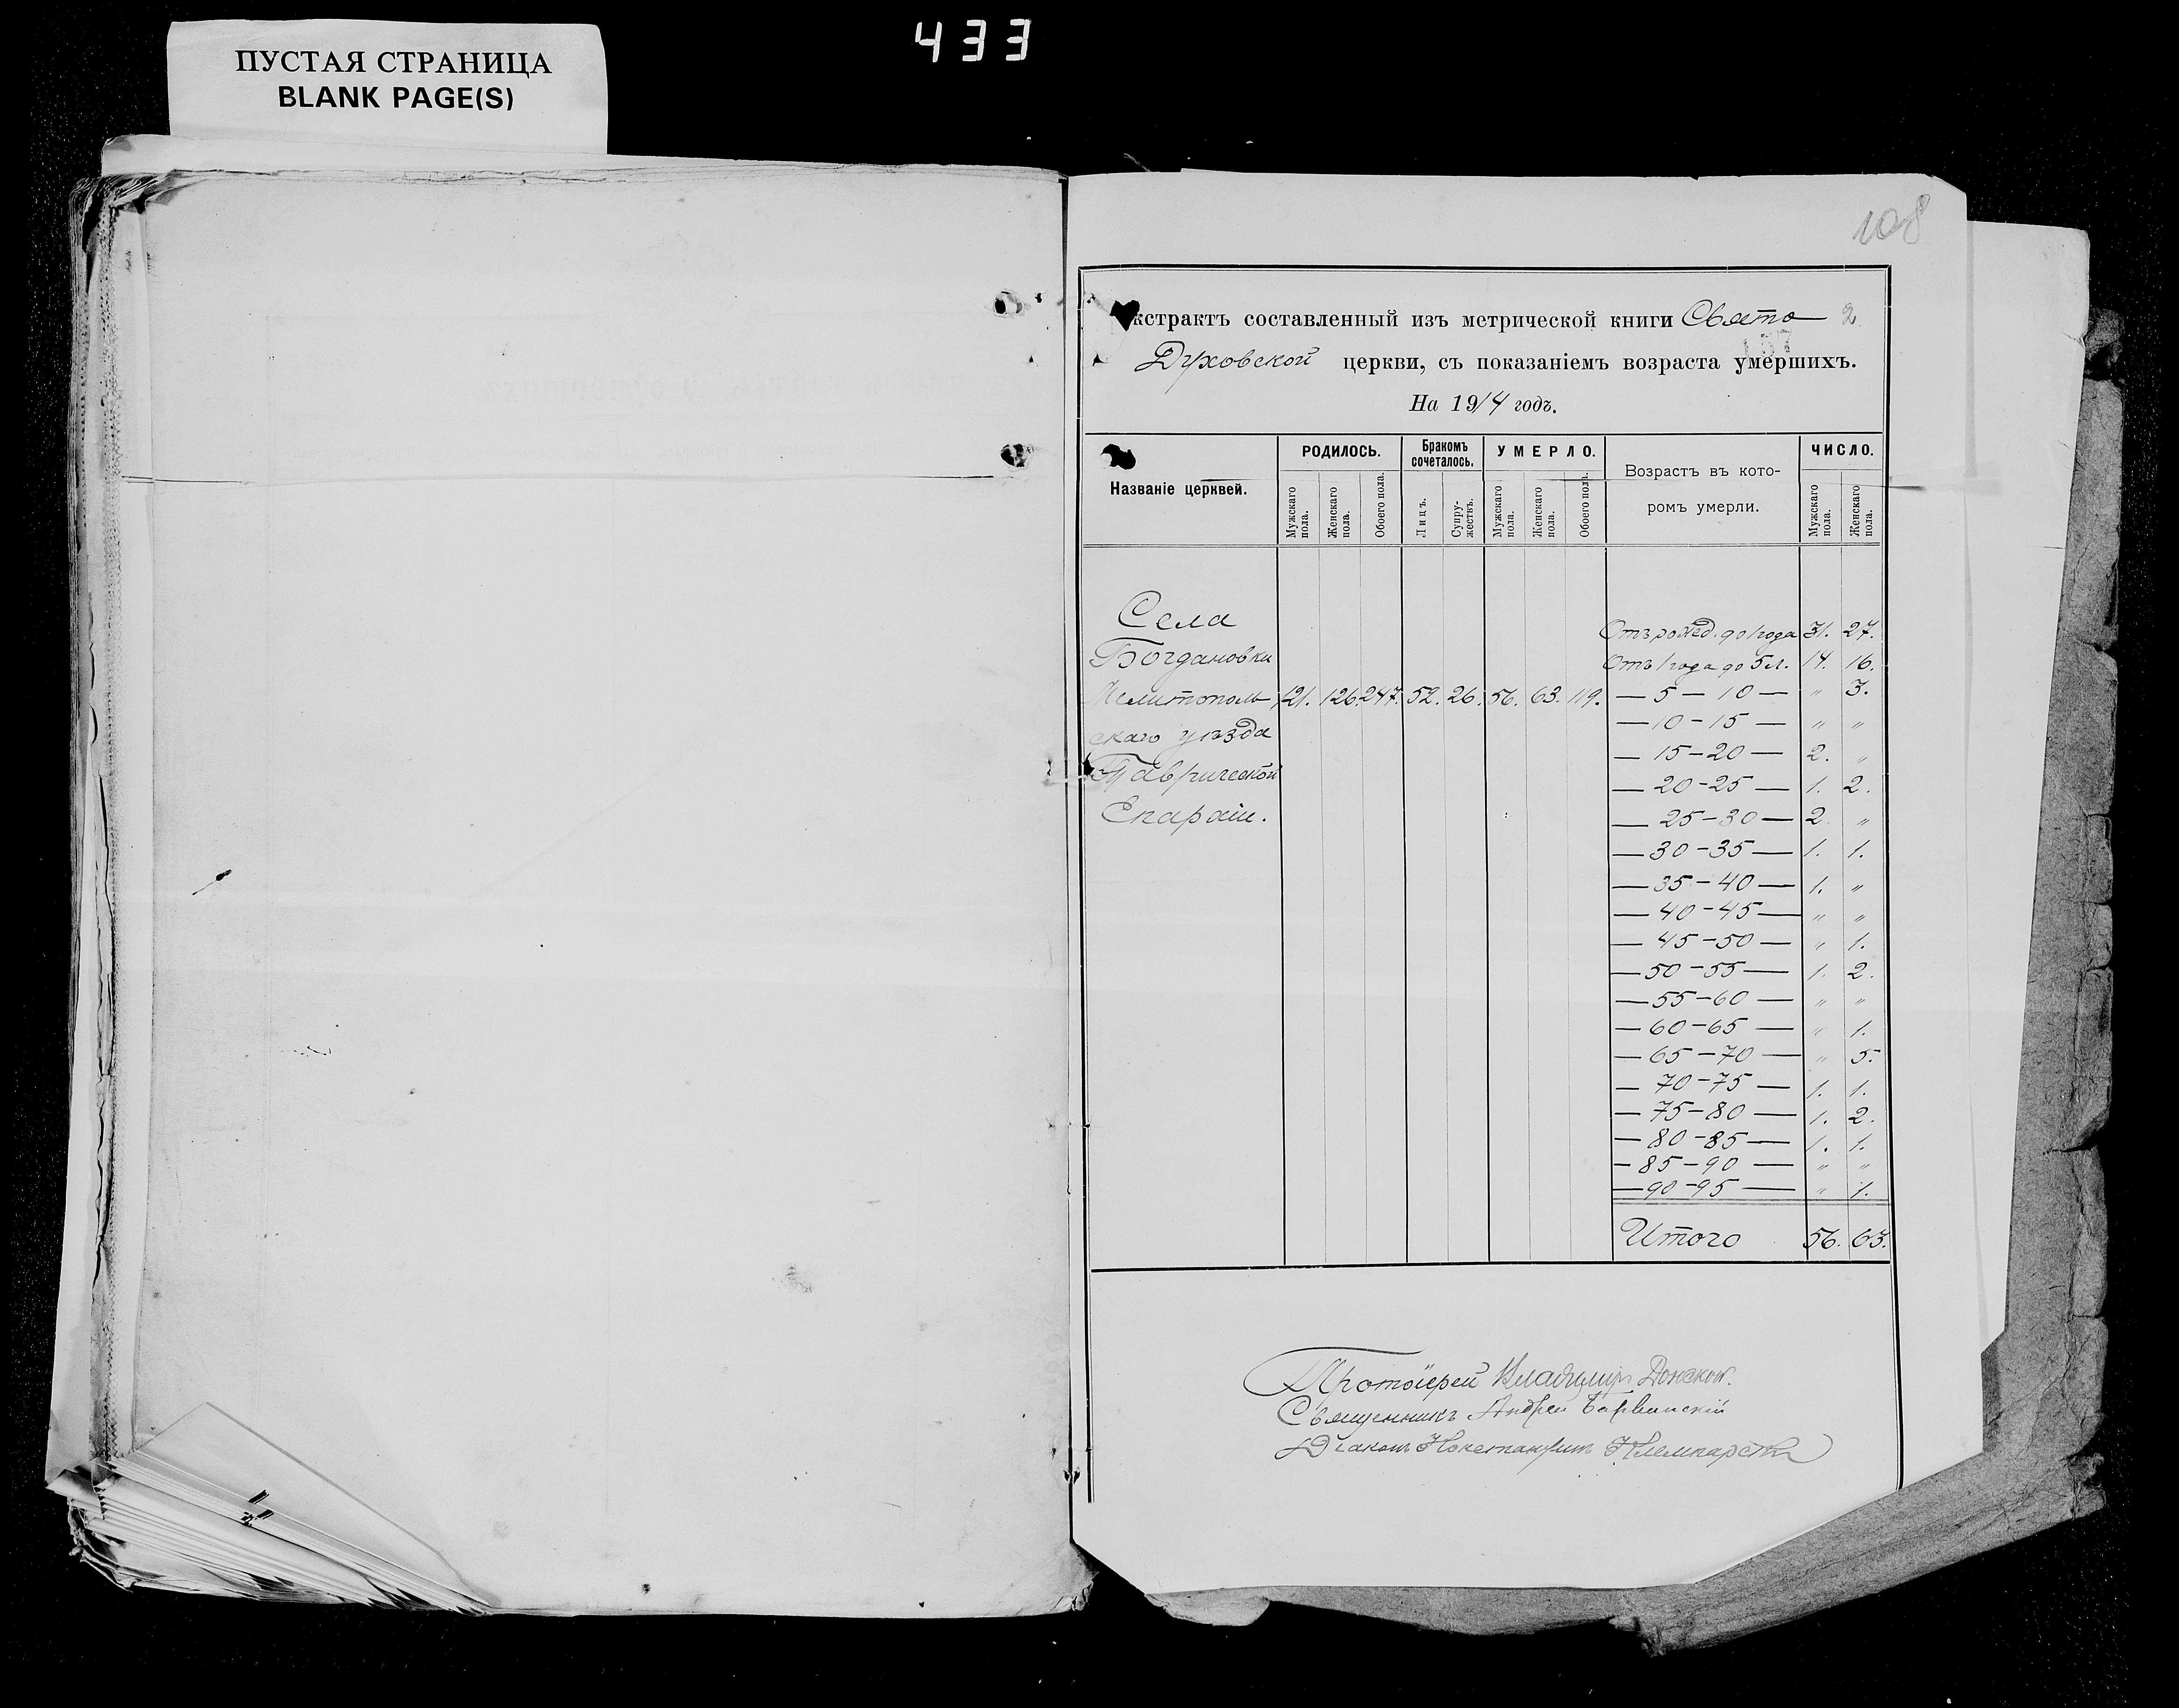 433
ПУСТАЯ СТРАНИЦА
BLANK PAGE(S)
108
кстрактъ составленный изъ метрической книги Свято 2
Духовской церкви, съ показаніемъ возраста умершихъ.
На 1914 годъ.
Названіе церквей.
РОДИЛОСЬ.
Мужскаго пола.
Женскаго пола.
Обоего пола.
Бракомъ сочеталось.
Лицъ.
Супружествъ.
УМЕРЛО.
Мужскаго пола.
Женскаго пола.
Обоего пола.
Возрастъ въ кото-
ромъ умерли.
ЧИСЛО.
Мужскаго пола.
Женскаго пола.
Села
Богдановки
Мелитополь 121. 126. 247. 52. 26. 56. 63. 119.
скаго уѣзда
Таврической
Епархіи.
Отъ рожд. до 1 года 31. 27.
Отъ 1 года до 5 л. 14. 16.
— 5 — 10 — " 3.
— 10 - 15 — " "
— 15 - 20 — 2. "
— 20 - 25 — 1. 2.
— 25 - 30 — 2. "
— 30 - 35 — 1. 1.
— 35 - 40 — 1. "
— 40 - 45 — " "
— 45 - 50 — " 1.
— 50 - 55 — 1. 2.
— 55 - 60 — " "
— 60 - 65 — " 1.
— 65 - 70 — " 5.
— 70 - 75 — 1. 1.
— 75 - 80 — 1. 2.
— 80 - 85 — 1. 1.
— 85 - 90 — " "
— 90 - 95 — " 1.
Итого 56. 63.
Протоіерей Владиміръ Донской.
Священникъ Андрей Барвинскій
Діаконъ Константинъ